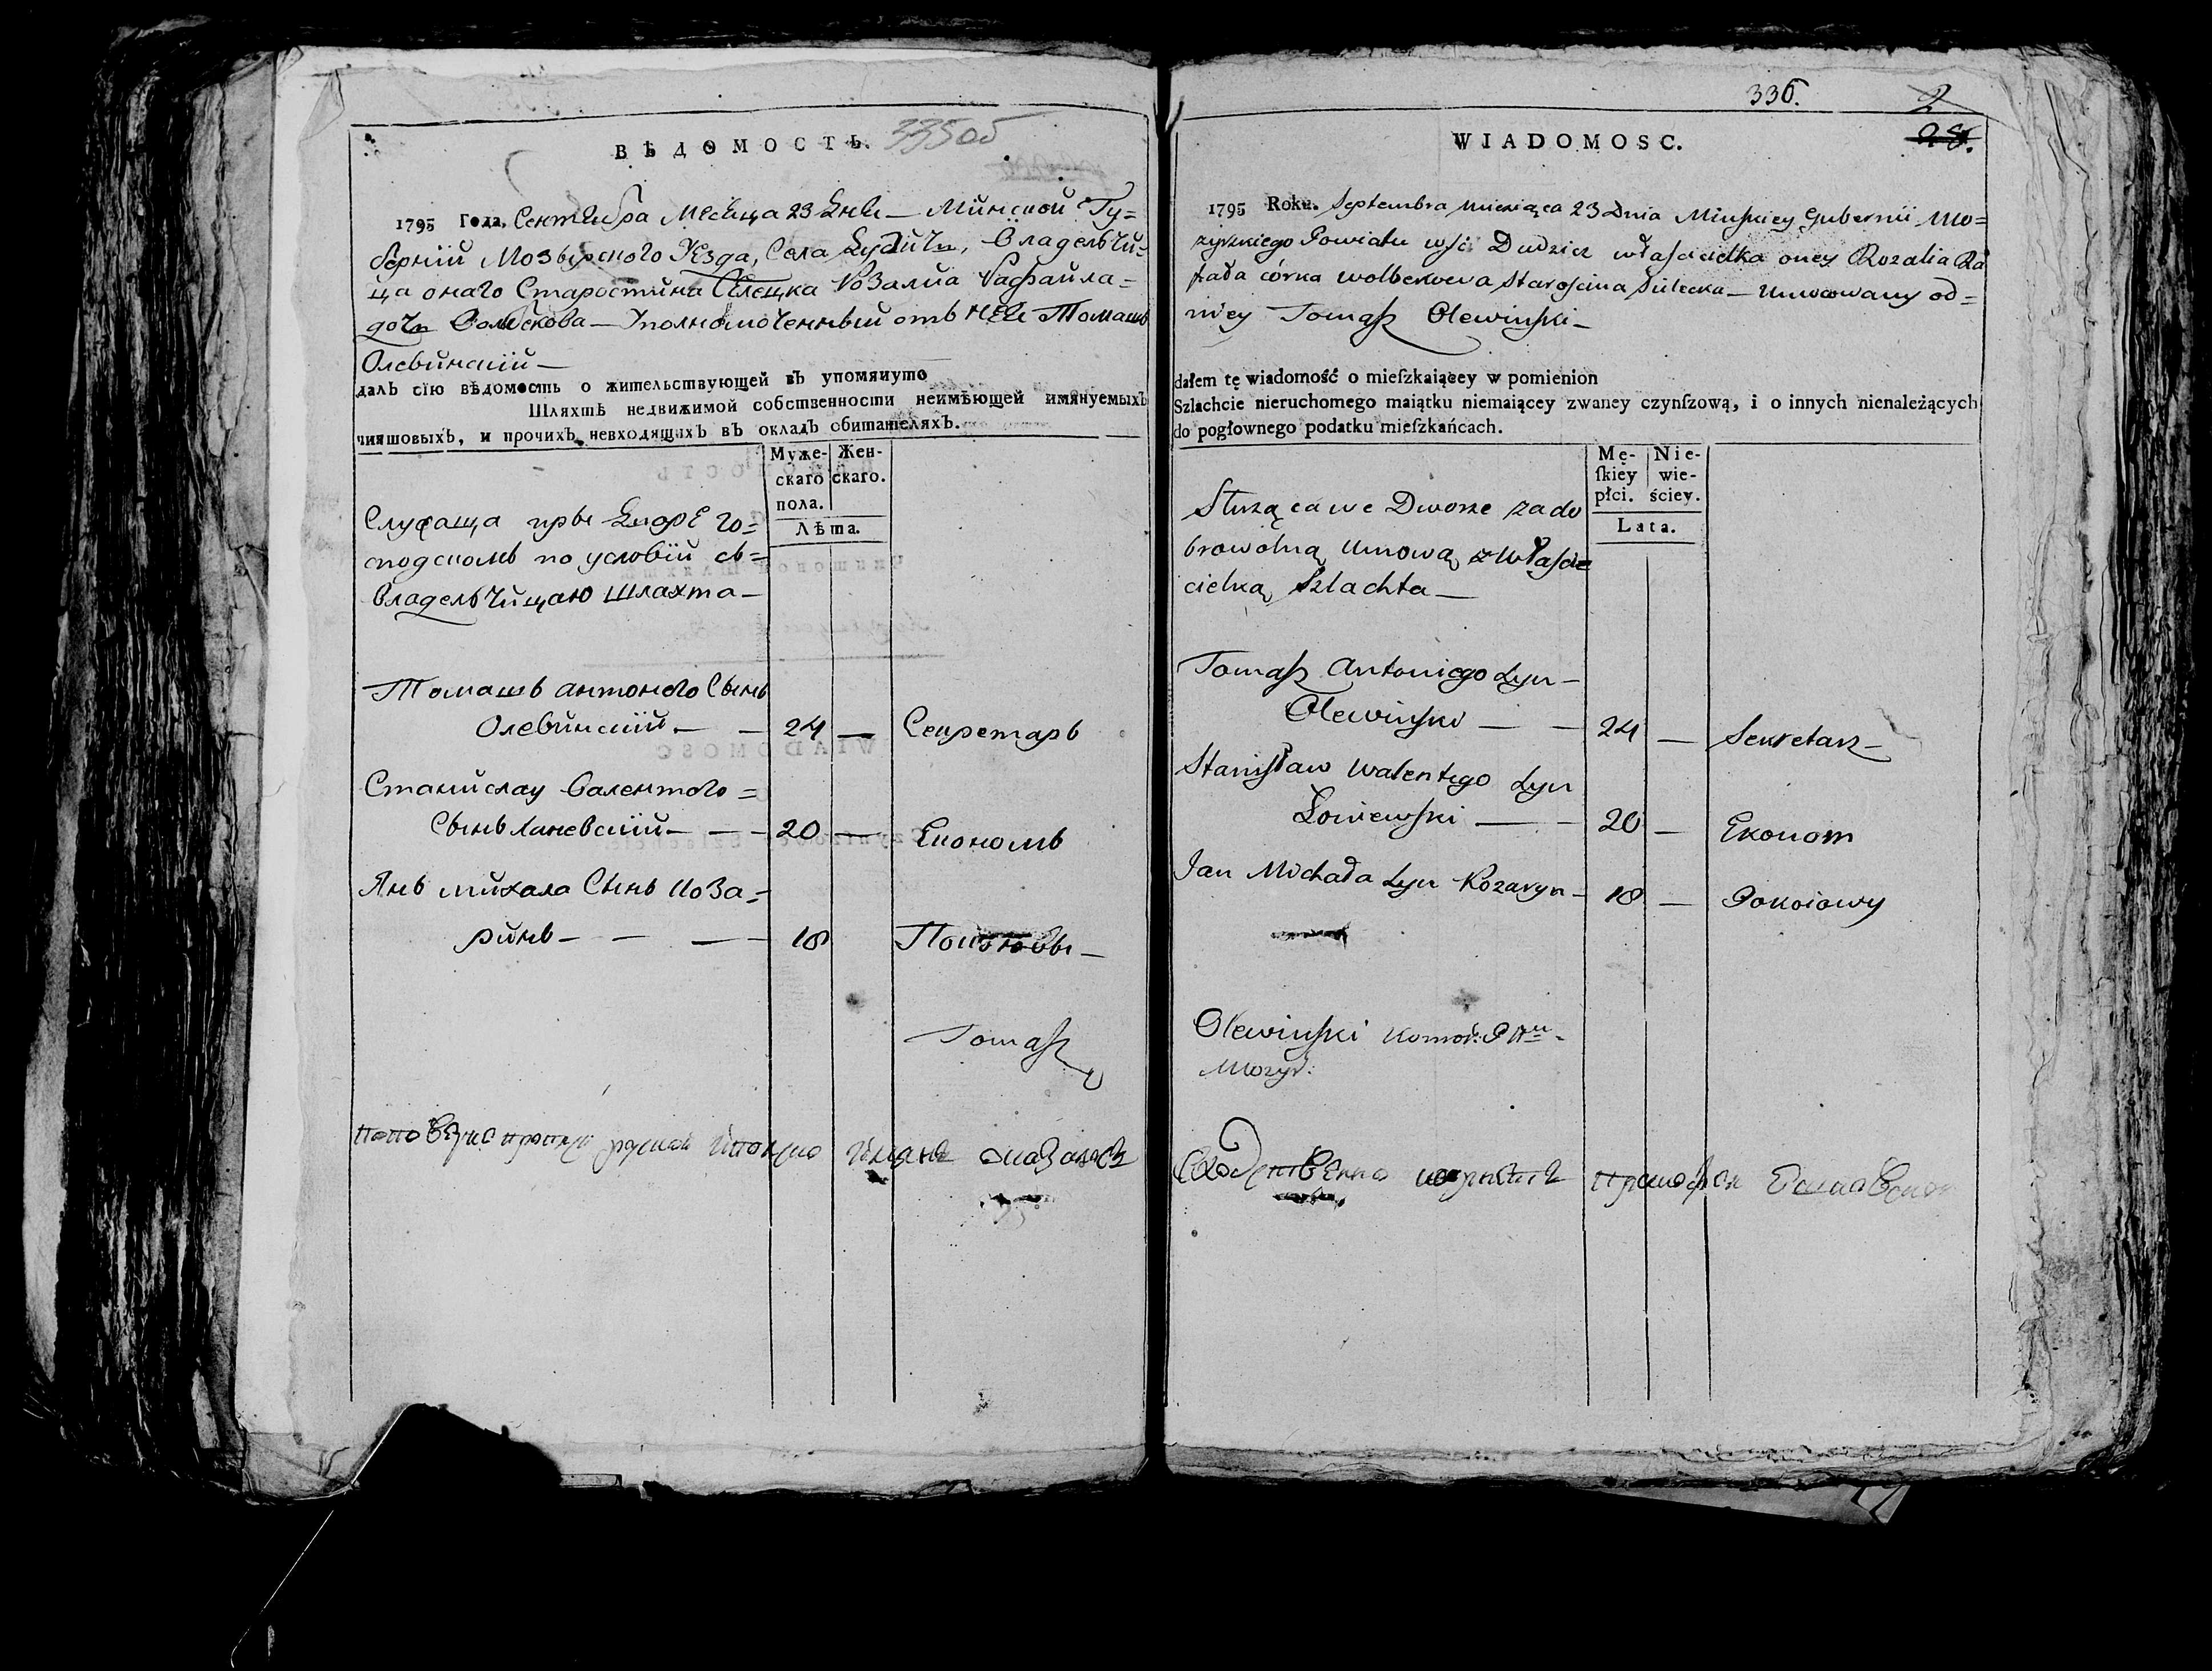 ВѢДОМОСТЬ. 335об
1795 Года. Сентебра месеца 23 дне — Минской Гу=
берніи Мозырского Уезда, Села Дудичъ, владельчи=
ца онаго Старостина Селецка Розалиа Рафаила=
дочъ — Уполномоченный отъ нее Томашъ
Олевинскій —
далъ сїю вѣдомость о жительствующей въ упомянуто
Шляхтѣ недвижимой собственности неимѣющей имянуемыхъ
чиншовыхъ, и прочихъ невходящихъ въ окладъ обитателяхъ.
Муже- Жен-
скаго скаго.
пола.
Лѣта.
Служаща при дворе го=
подскомъ по условіи съ=
владельчицаю шлахта —
Томашъ антонего Сынъ
Олевинскій — — 24 — Секретаръ
Станислау валентого =
Сынъ Ланевскій — — 20 — Економъ
Янъ михала Сынъ Коза=
ринъ — — — 18 Покоіовы —
Tomasz
336. 2
WIADOMOSC.
1795 Roku. Septembra miesiąca 23 Dnia Minskiey Gubernii Mo=
zyrskiego Powiatu wsi Dudzicz właścicielka oney Rozalia Ra
fała córka Starościna Sielecka — Umocowany od=
niey Tomasz Olewinski —
dałem tę wiadomość o mieſzkaiącey w pomienion
Szlachcie nieruchomego maiątku niemaiącey zwaney czynſzową, i o innych nienależących
do pogłownego podatku mieſzkańcach.
Mę- Nie-
ſkiey wie-
płci. ściey.
Lata.
Służąca we Dworze za do
browolną Umową z właści
cielką Szlachta —
Tomasz Antoniego Syn —
Olewinski — — 24 — Sekretarz —
Stanisław Walentego Syn
Łoniewski — — 20 — Ekonom
Jan Michała Syn Kozaryn — 18 — Pokoiowy
Olewinski Komor: Ptu
Mozyr: